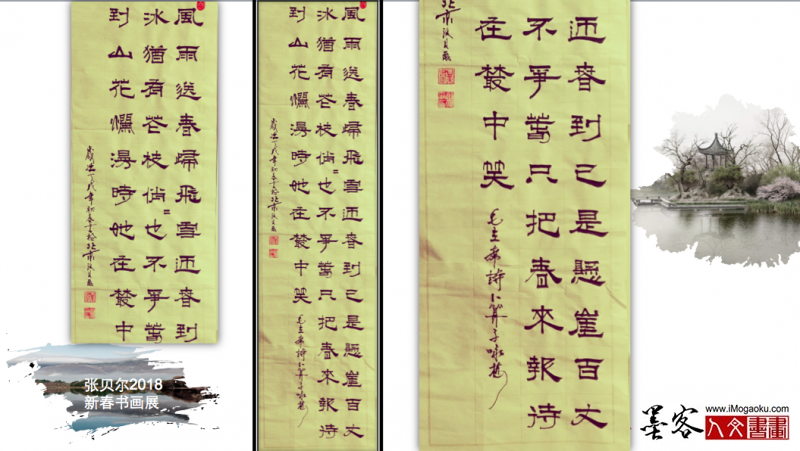 風雨送春歸飛雪迎春到
冰猶有花枝俏〻也不爭春
到山花爛漫時她在叢中
風雨送春歸飛雪迎春到已是懸崖百丈
冰猶有花枝俏〻也不爭春只把春來報待
到山花爛漫時她在叢中笑
毛主席詩卜算子咏梅
迎春到已是懸崖百丈
不爭春只把春來報待
在叢中笑
毛主席詩卜算子咏梅
张贝尔2018
新春书画展
墨客
www.iMogaoku.com
人文書畫